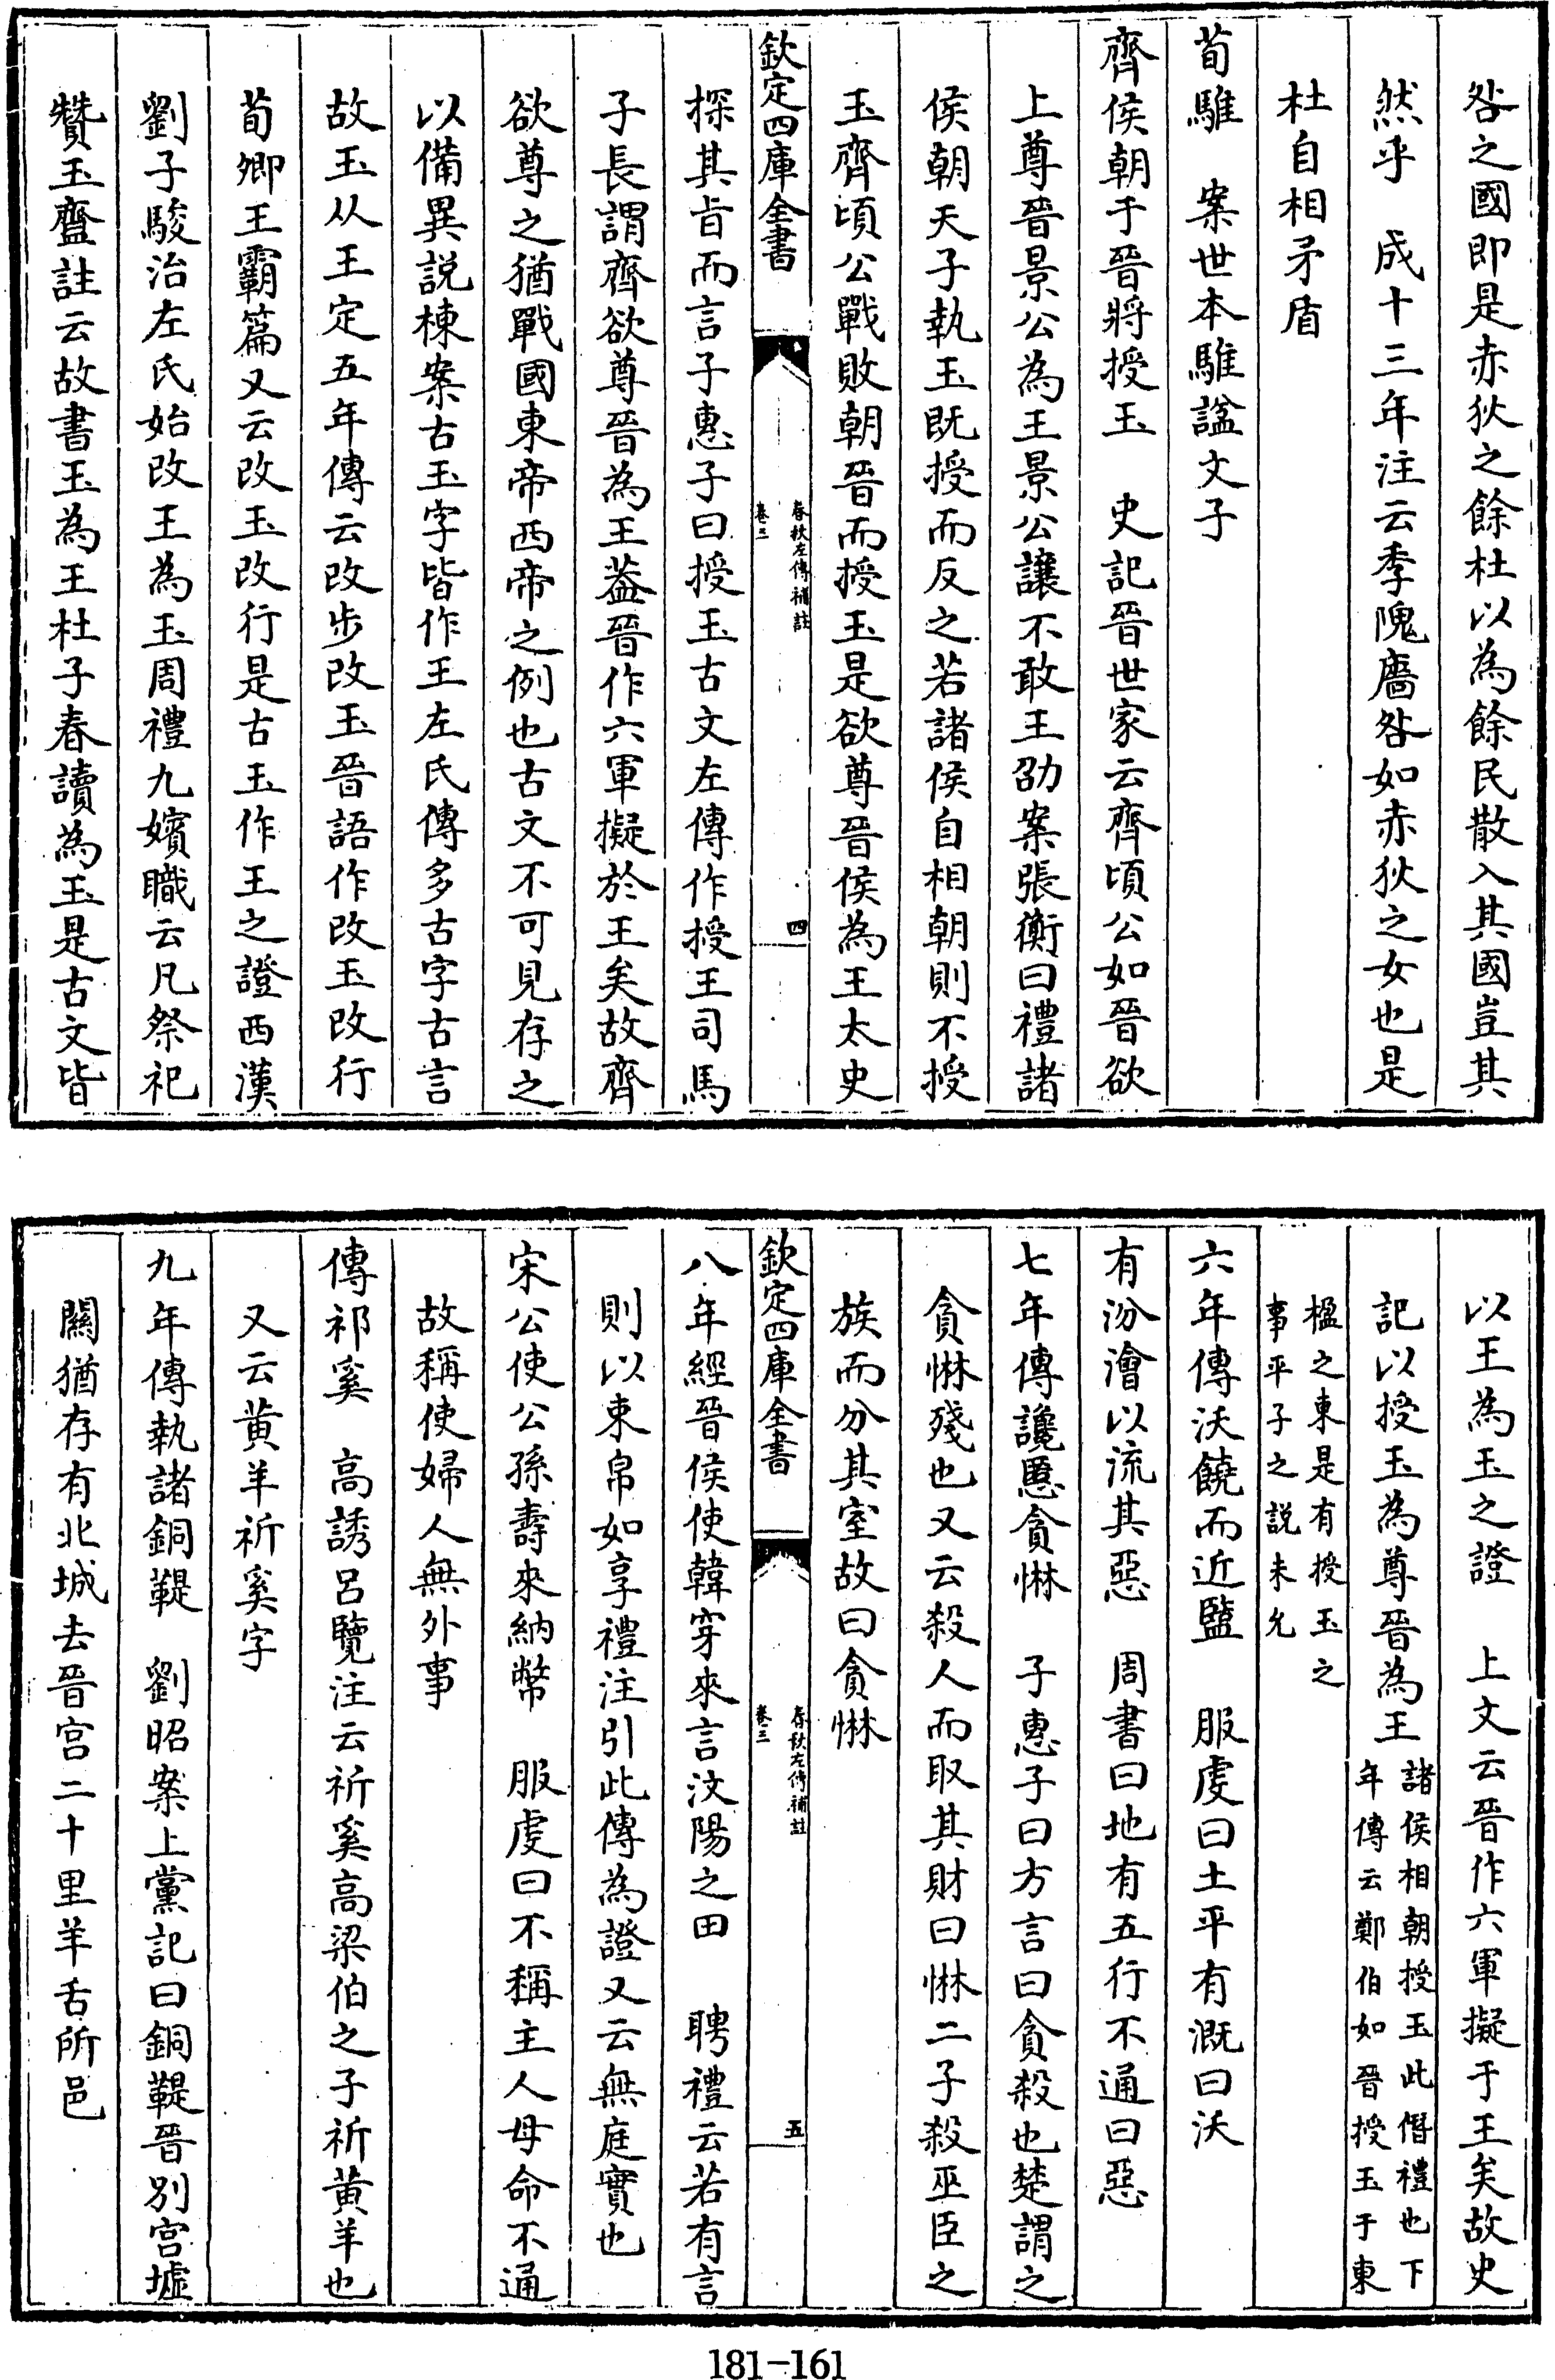 咎之國即是赤狄之餘杜以為餘民散入其國豈其
然乎　成十三年注云季隗廧咎如赤狄之女也是
杜自相矛盾
荀騅　案世本騅諡文子
齊侯朝于晉將授玉　史記晉世家云齊頃公如晉欲
上尊晉景公為王景公讓不敢王劭案張衡曰禮諸
侯朝天子執玉既授而反之若諸侯自相朝則不授
玉齊頃公戰敗朝晉而授玉是欲尊晉侯為王太史
欽定四庫全書
春秋左傳補註
卷三
四
探其旨而言子惠子曰授玉古文左傳作授王司馬
子長謂齊欲尊晉為王葢晉作六軍擬於王矣故齊
欲尊之猶戰國東帝西帝之例也古文不可見存之
以備異説棟案古玉字皆作王左氏傳多古字古言
故玉从王定五年傳云改步改玉晉語作改玉改行
荀卿王霸篇又云改玉改行是古玉作王之證西漢
劉子駿治左氏始改王為玉周禮九嬪職云凡祭祀
贊玉齍註云故書玉為王杜子春讀為玉是古文皆
以王為玉之證　上文云晉作六軍擬于王矣故史
記以授玉為尊晉為王
諸侯相朝授玉此僭禮也下
年傳云鄭伯如晉授玉于東
楹之東是有授玉之
事平子之説未允
六年傳沃饒而近盬　服虔曰土平有溉曰沃
有汾澮以流其惡　周書曰地有五行不通曰惡
七年傳讒慝貪惏　子惠子曰方言曰貪殺也楚謂之
貪惏殘也又云殺人而取其財曰惏二子殺巫臣之
族而分其室故曰貪惏
欽定四庫全書
春秋左傳補註
卷三
五
八年經晉侯使韓穿來言汶陽之田　聘禮云若有言
則以束帛如享禮注引此傳為證又云無庭實也
宋公使公孫壽來納幣　服虔曰不稱主人母命不通
故稱使婦人無外事
傳祁奚　高誘呂覽注云祈奚高梁伯之子祈黄羊也
又云黄羊祈奚字
九年傳執諸銅鞮　劉昭案上黨記曰銅鞮晉别宫墟
關猶存有北城去晉宫二十里羊舌所邑
181-161